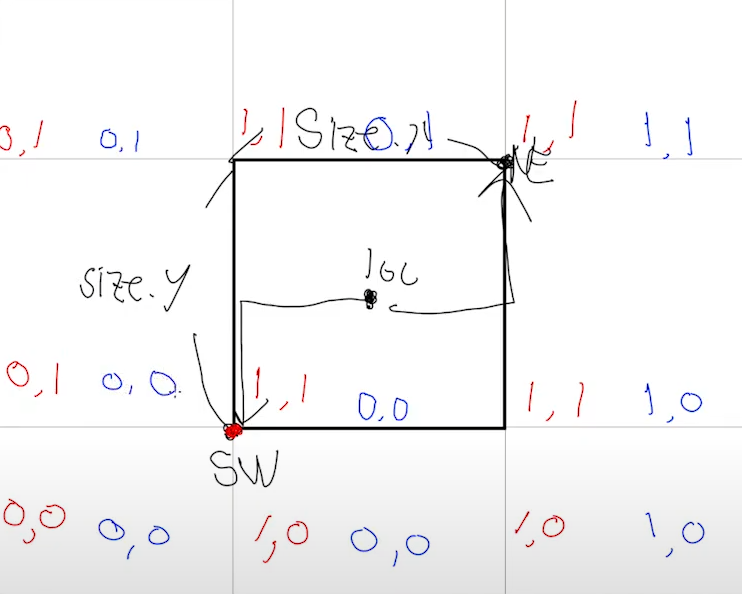 0,1 0,1 1,1 Size.x 0,1 1,1 1,1
NE
loc
size.y
0,1 0,0 1,1 0,0 1,1 1,0
SW
0,0 0,0 1,0 0,0 1,0 1,0